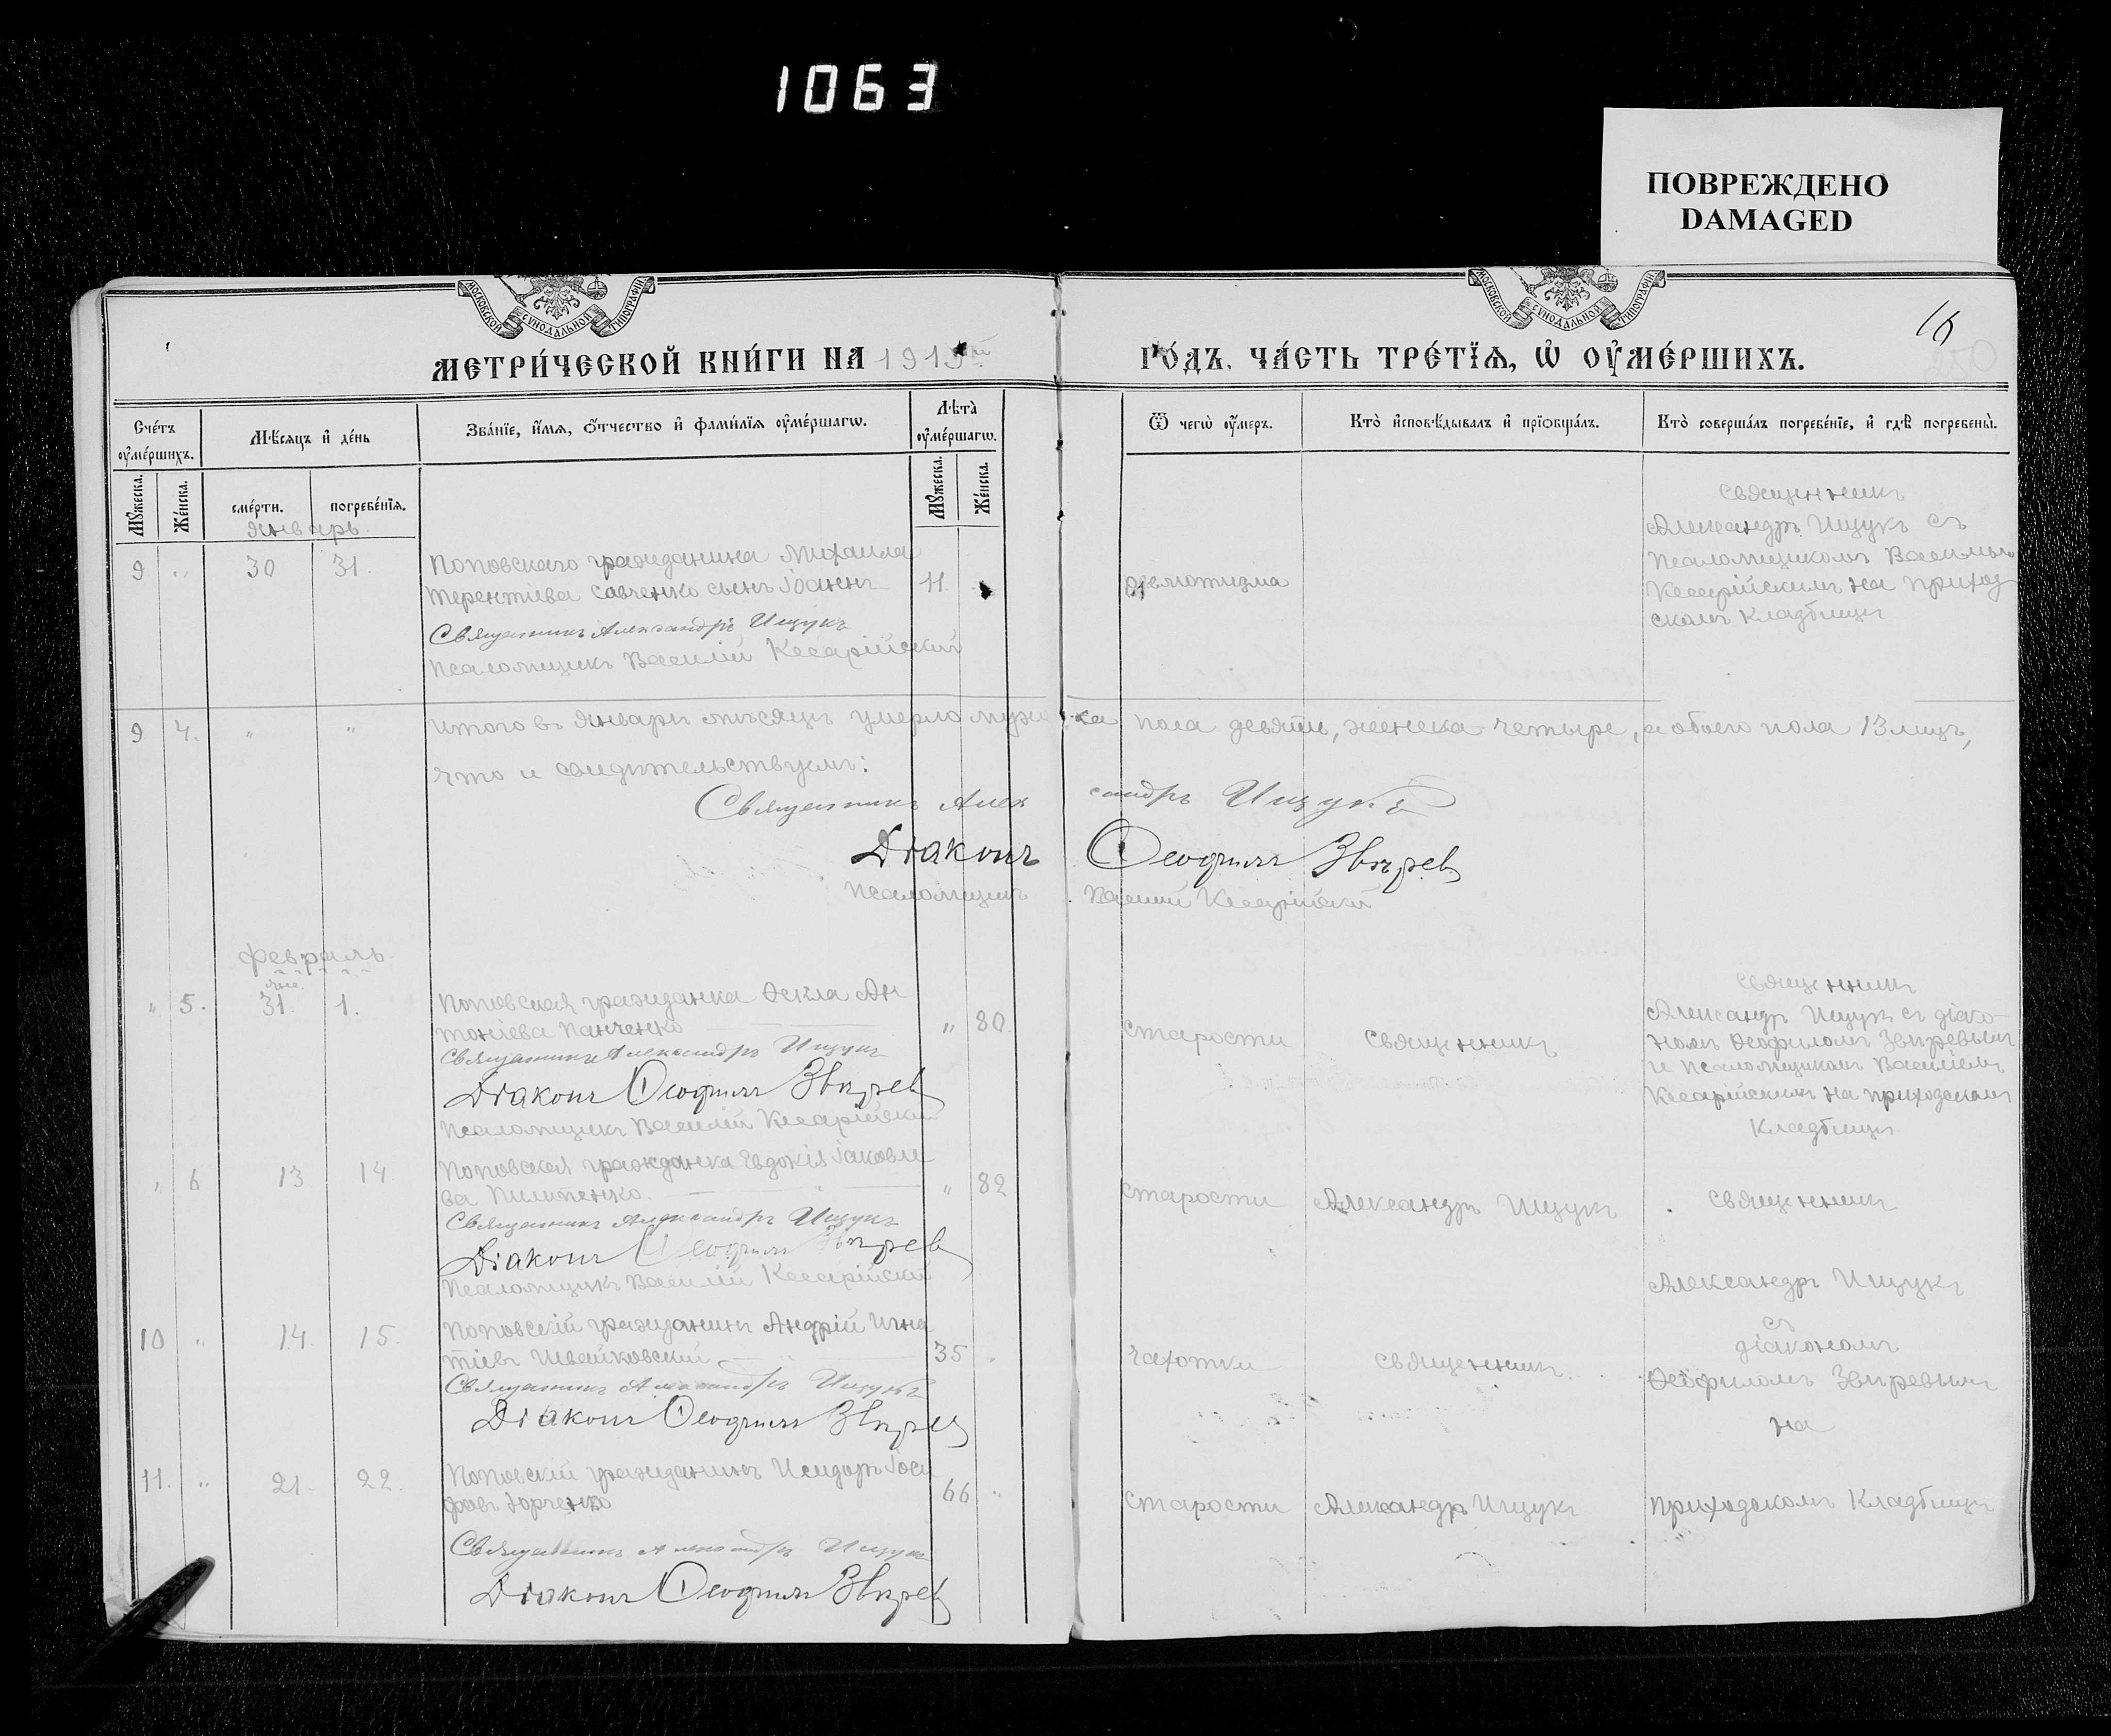 1063
ПОВРЕЖДЕНО
DAMAGED
МОСКОВСКОЙ СѴНОДАЛЬНОЙ ТИПОГРАФІИ
МОСКОВСКОЙ СѴНОДАЛЬНОЙ ТИПОГРАФІИ
16
250
МЕТРИ́ЧЕСКОЙ КНИ́ГИ НА 191
ГО́ДЪ, ЧА́СТЬ ТРЕ́ТЇѦ, Ѡ҆ ОУ҆МЕ́РШИХЪ.
Сче́тъ оу҆ме́ршихъ.
Мѣ́сяцъ и҆ де́нь
Зва́нїе, и҆́мя, ѻ҆́тчество и҆ фами́лїя оу҆ме́ршагѡ.
Лѣ̀та̀ оу҆ме́ршагѡ.
Ѿ чегѡ̀ оу҆́меръ.
Кто̀ и҆сповѣ́дывалъ и҆ прїѻбща́лъ.
Кто̀ соверша́лъ погребе́нїе, и҆ гдѣ̀ погребены̀.
Мꙋ́жеска.
Же́нска.
сме́рти.
погребе́нїя.
Мꙋ́жеска.
Же́нска.
Январь
9 " 30 31. Поповскаго гражданина Михаила
Терентіева Савченко сынъ Іоаннъ 11.
Священникъ Александръ Ищукъ
Псаломщикъ Василій Кесарійскій
ревматизма
Священникъ
Александръ Ищукъ съ
псаломщикомъ Василіемъ
Кесарійскимъ на приход
скомъ кладбищѣ
9 4. " " Итого въ Январѣ мѣсяцѣ умерло муже ска пола девять, женска четыре, а обоего пола 13 лицъ,
что и свидѣтельствуемъ:
Священникъ Алек сандръ Ищукъ
Діаконъ Ѳеофилъ Звѣревъ
Псаломщикъ Василій Кесарійскій
Февраль
Янв.
" 5. 31. 1. Поповская гражданка Ѳекла Ан
тоніева Панченко " 80
Священникъ Александръ Ищукъ
Діаконъ Ѳеофилъ Звѣревъ
Псаломщикъ Василій Кесарійскій
старости
Священникъ
Священникъ
Александръ Ищукъ съ діако-
номъ Ѳеофиломъ Звѣревымъ
и псаломщикомъ Василіемъ
Кесарійскимъ на приходскомъ
кладбищѣ
" 6 13 14. Поповская гражданка Евдокія Іаковле
ва Пилипенко. " 82
Священникъ Александръ Ищукъ
Діаконъ Ѳеофилъ Звѣревъ
Псаломщикъ Василій Кесарійскій
старости
Александръ Ищукъ
Священникъ
Александръ Ищукъ
10 " 14. 15. Поповскій гражданинъ Андрій Игна
тіевъ Швайковскій 35
Священникъ Александръ Ищукъ
Діаконъ Ѳеофилъ Звѣревъ
чахотки
Священникъ
съ
діакономъ
Ѳеофиломъ Звѣревымъ
на
11. " 21. 22. Поповскій гражданинъ Исидоръ Іоси
фовъ Юрченко 66 "
Священникъ Александръ Ищукъ
Діаконъ Ѳеофилъ Звѣревъ
старости
Александръ Ищукъ
приходскомъ кладбищѣ